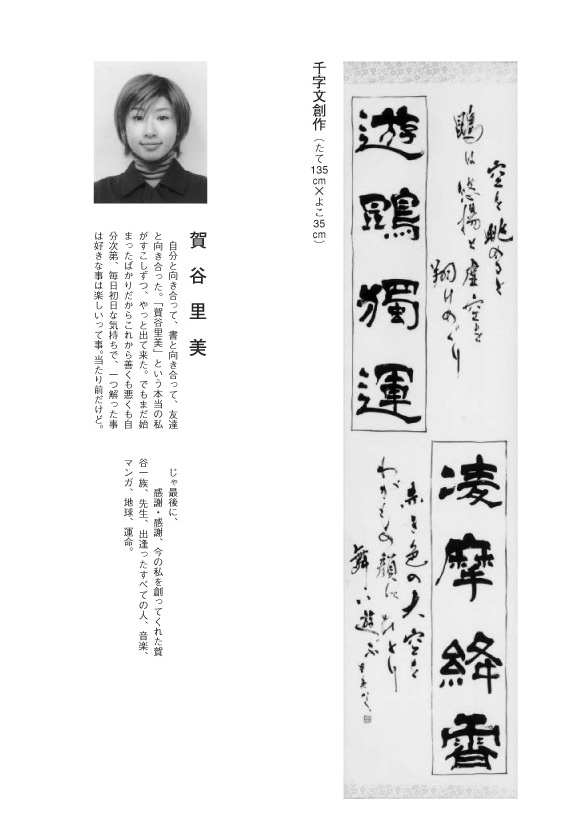 空を眺めると
鵾は悠揚と虚空を
翔けめぐり
遊鵾獨運
凌摩絳霄
赤き色の大空を
わがもの顔にひとり
舞い遊ぶ
千字文創作（たて135cm×よこ35cm）
賀谷里美
自分と向き合って、書と向き合って、友達
と向き合った。「賀谷里美」という本当の私
がすこしずつ、やっと出て来た。でもまだ始
まったばかりだからこれから善くも悪くも自
分次第、毎日初日な気持ちで、一つ解った事
は好きな事は楽しいって事。当たり前だけど。
じゃ最後に、
感謝・感謝、今の私を創ってくれた賀
谷一族、先生、出逢ったすべての人、音楽、
マンガ、地球、運命。